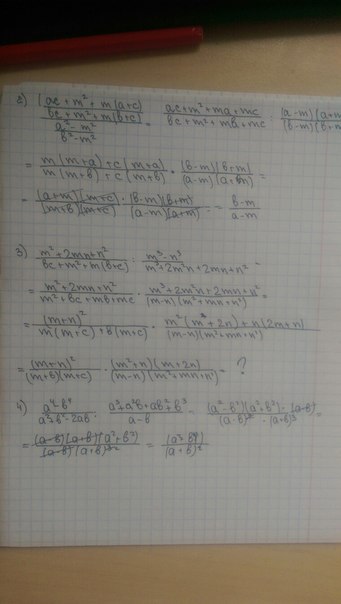 2) (ac + m² + m(a+c)) / (bc + m² + m(b+c)) / ((a² - m²) / (b² - m²)) = (ac + m² + ma + mc) / (bc + m² + mb + mc) : (a-m)(a+m) / (b-m)(b+m)
= (m(m+a) + c(m+a)) / (m(m+b) + c(m+b)) · ((b-m)(b+m)) / ((a-m)(a+m)) =
= ((a+m)(m+c)) / ((m+b)(m+c)) · ((b-m)(b+m)) / ((a-m)(a+m)) = (b-m) / (a-m)
3) (m² + 2mn + n²) / (bc + m² + m(b+c)) : (m³ - n³) / (m³ + 2m²n + 2mn + n²) =
= (m² + 2mn + n²) / (m² + bc + mb + mc) · (m³ + 2m²n + 2mn + n²) / ((m-n)(m² + mn + n²)) =
= (m+n)² / (m(m+c) + b(m+c)) · (m²(m + 2n) + n(2m + n)) / ((m-n)(m² + mn + n²))
= (m+n)² / ((m+b)(m+c)) · ((m² + n)(m + 2n)) / ((m-n)(m² + mn + n²)) = ?
4) (a⁴ - b⁴) / (a² + b² - 2ab) : (a³ + a²b + ab² + b³) / (a-b) = ((a² - b²)(a² + b²) · (a-b)) / ((a-b)² · (a+b)³) =
= ((a-b)(a+b)(a² + b²)) / ((a-b)(a+b)³) =